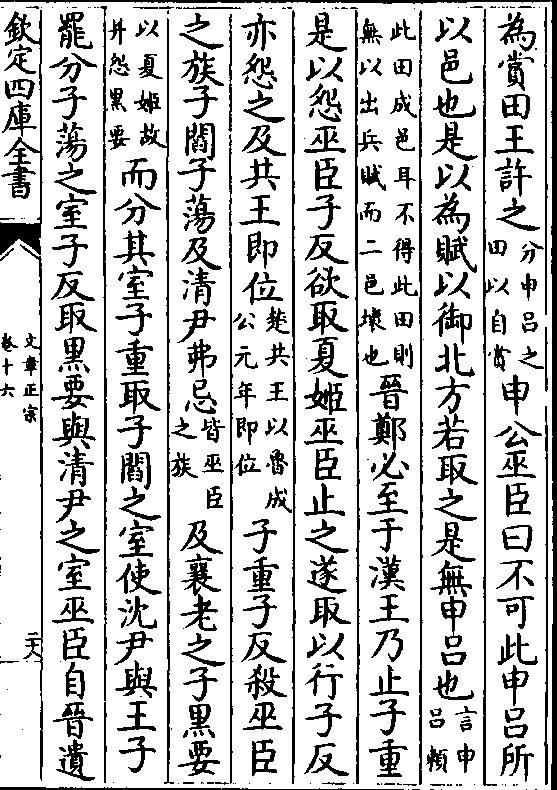 為賞田王許之分申呂之田以自賞申公巫臣曰不可此申呂所
以邑也是以為賦以御北方若取之是無申呂也言申呂賴
此田成邑耳不得此田則無以出兵賦而二邑壞也晉鄭必至于漢王乃止子重
是以怨巫臣子反欲取夏姬巫臣止之遂取以行子反
亦怨之及共王即位楚共王以魯成公元年即位子重子反殺巫臣
之族子閻子蕩及清尹弗忌皆巫臣之族及襄老之子黒要
以夏姬故并怨黒要而分其室子重取子閻之室使沈尹與王子
罷分子蕩之室子反取黒要與清尹之室巫臣自晉遺
欽定四庫全書
文章正宗
卷十六
二六